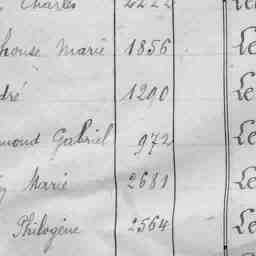 Charles 2222 Le
house Marie 1856 Le
dré 1290 Le
mond Gabriel 972 Le
Marie 2681 Le
Philogène 2564 Le